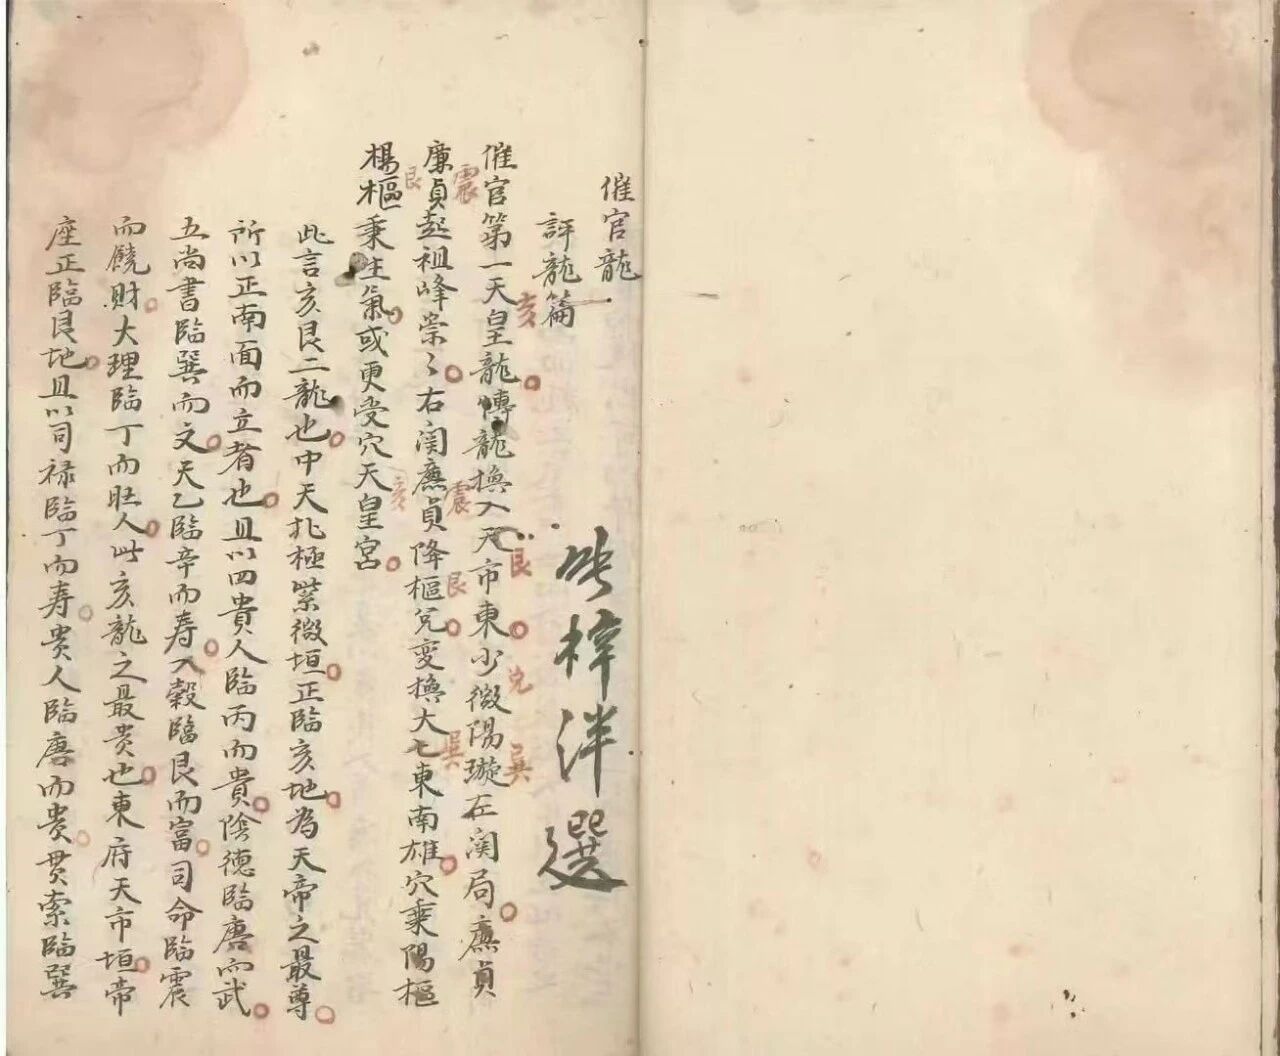 催官龍
評龍篇
梓泮選
催官第一天皇龍博龍換入天市東少微陽璇左関局廉貞
亥艮兌巽
廉貞起祖峰崇〻右関廉貞降樞兌変換大七東南雄穴乗陽樞
震震艮巽
楊樞乗生氣或更受穴天皇宮
艮亥
此言亥艮二龍也中天北極紫微垣正臨亥地為天帝之最尊
所以正南面而立者也且以四貴人臨丙而貴陰德臨庚而武
五尚書臨巽而文天乙臨辛而寿入穀臨艮而富司命臨震
而饒財大理臨丁而旺人此亥龍之最贵也東府天市垣帝
座正臨艮地且以司禄臨丁而寿贵人臨庚而贵贯索臨巽